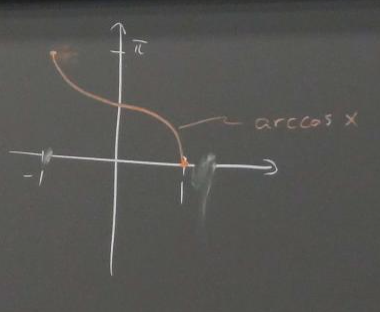 π
arccos x
-1
1